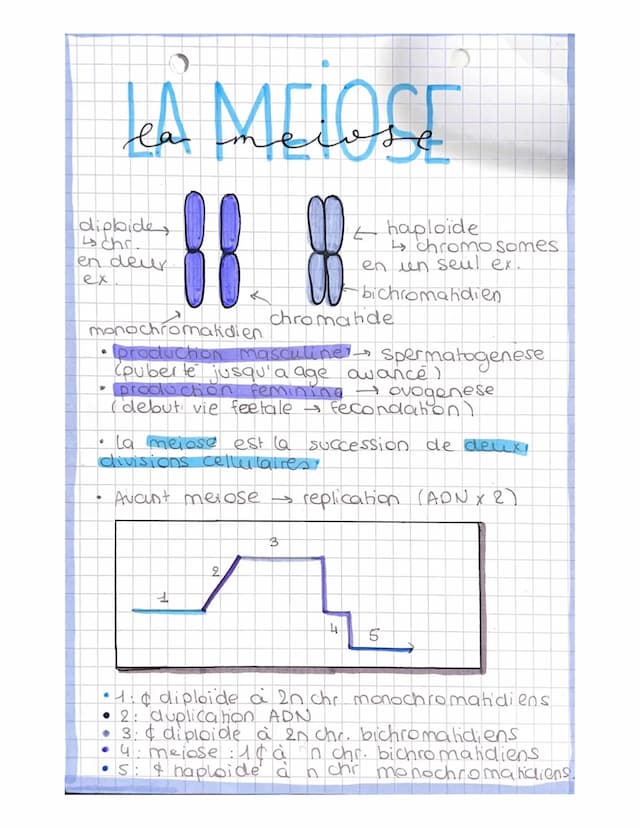 LA MEIOSE
la meiose
diploide
↳ chr.
en deux
ex.
haploïde
↳ chromosomes
en un seul ex.
bichromatidien
chromatide
monochromatidien
• production masculine → spermatogenese
(puberté jusqu'a age avancé)
• production feminine → ovogenese
(debut vie foetale → fecondation)
• La meiose est la succession de deux
divisions cellulaires.
• Avant meiose → replication (ADN x 2)
3
2
1
4
5
• 1: ¢ diploide à 2n chr monochromatidiens
• 2: duplication ADN
• 3: ¢ diploide à 2n chr. bichromatidiens
• 4: meiose : 1¢ à n chr. bichromatidiens
• 5: ¢ haploide à n chr monochromatidiens.